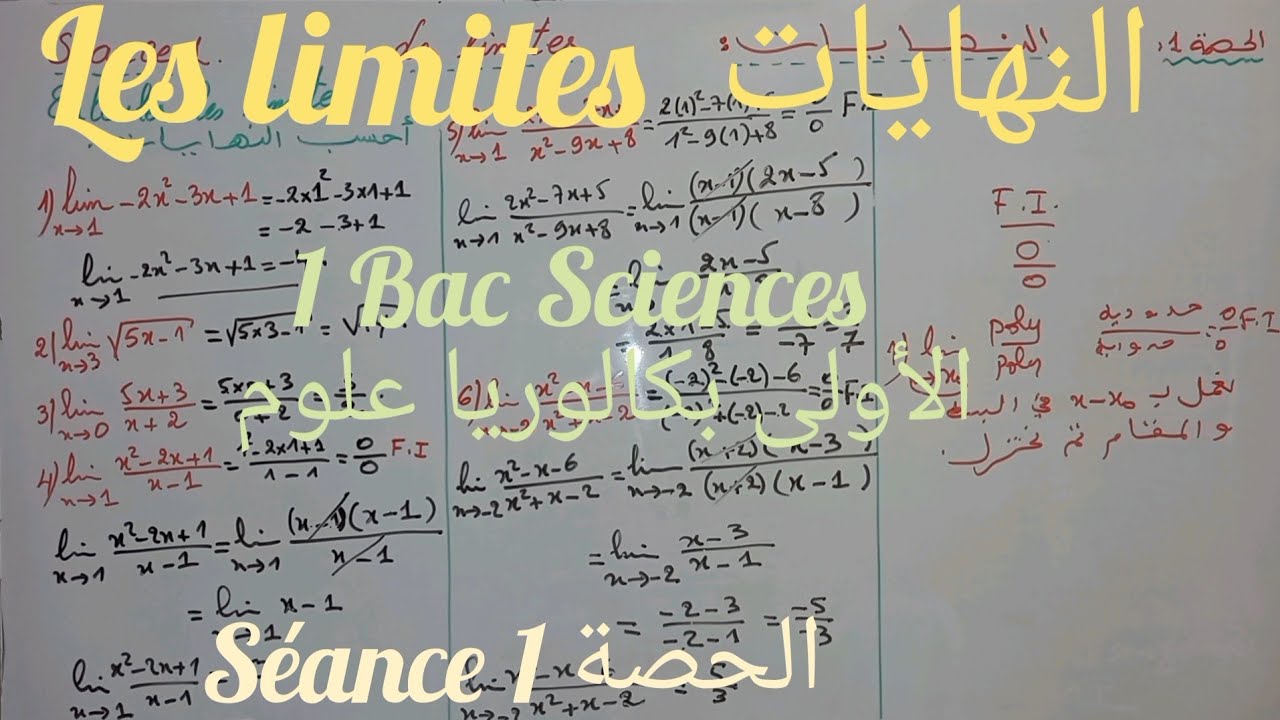 Les limites النهايات
1 Bac Sciences
الأولى بكالوريا علوم
Séance 1 الحصة
الحصة 1:
de limites
أحسب النهايات
1) lim x→1 -2x²-3x+1 = -2x1²-3x1+1
= -2-3+1
lim x→1 -2x²-3x+1 =
2) lim x→3 √5x-1 = √5x3-1 =
3) lim x→0 5x+3/x+2 =
4) lim x→1 x²-2x+1/x-1 = 1-2x1+1/1-1 = 0/0 F.I
lim x→1 x²-2x+1/x-1 = lim x→1 (x-1)(x-1)/x-1
= lim x→1 x-1
lim x→1 x²-2x+1/x-1
5) lim x→1 x²-9x+8 = 2(1)²-7(1)+5/1²-9(1)+8 = 0/0 F.I
lim x→1 2x²-7x+5/x²-9x+8 = lim x→1 (x-1)(2x-5)/(x-1)(x-8)
2x-5
-7 7
6) lim (-2)²-(-2)-6 F.I
lim x→-2 x²-x-6/x²+x-2 = lim x→-2 (x+2)(x-3)/(x+2)(x-1)
= lim x→-2 x-3/x-1
= -2-3/-2-1 = -5/-3
lim x→-2 x²+x-2 = 5/3
F.I.
0/0
lim poly/poly حدودية/حدودية = 0/0 F.I
نعمل ب x-x₀ في البسط
والمقام ثم نختزل.